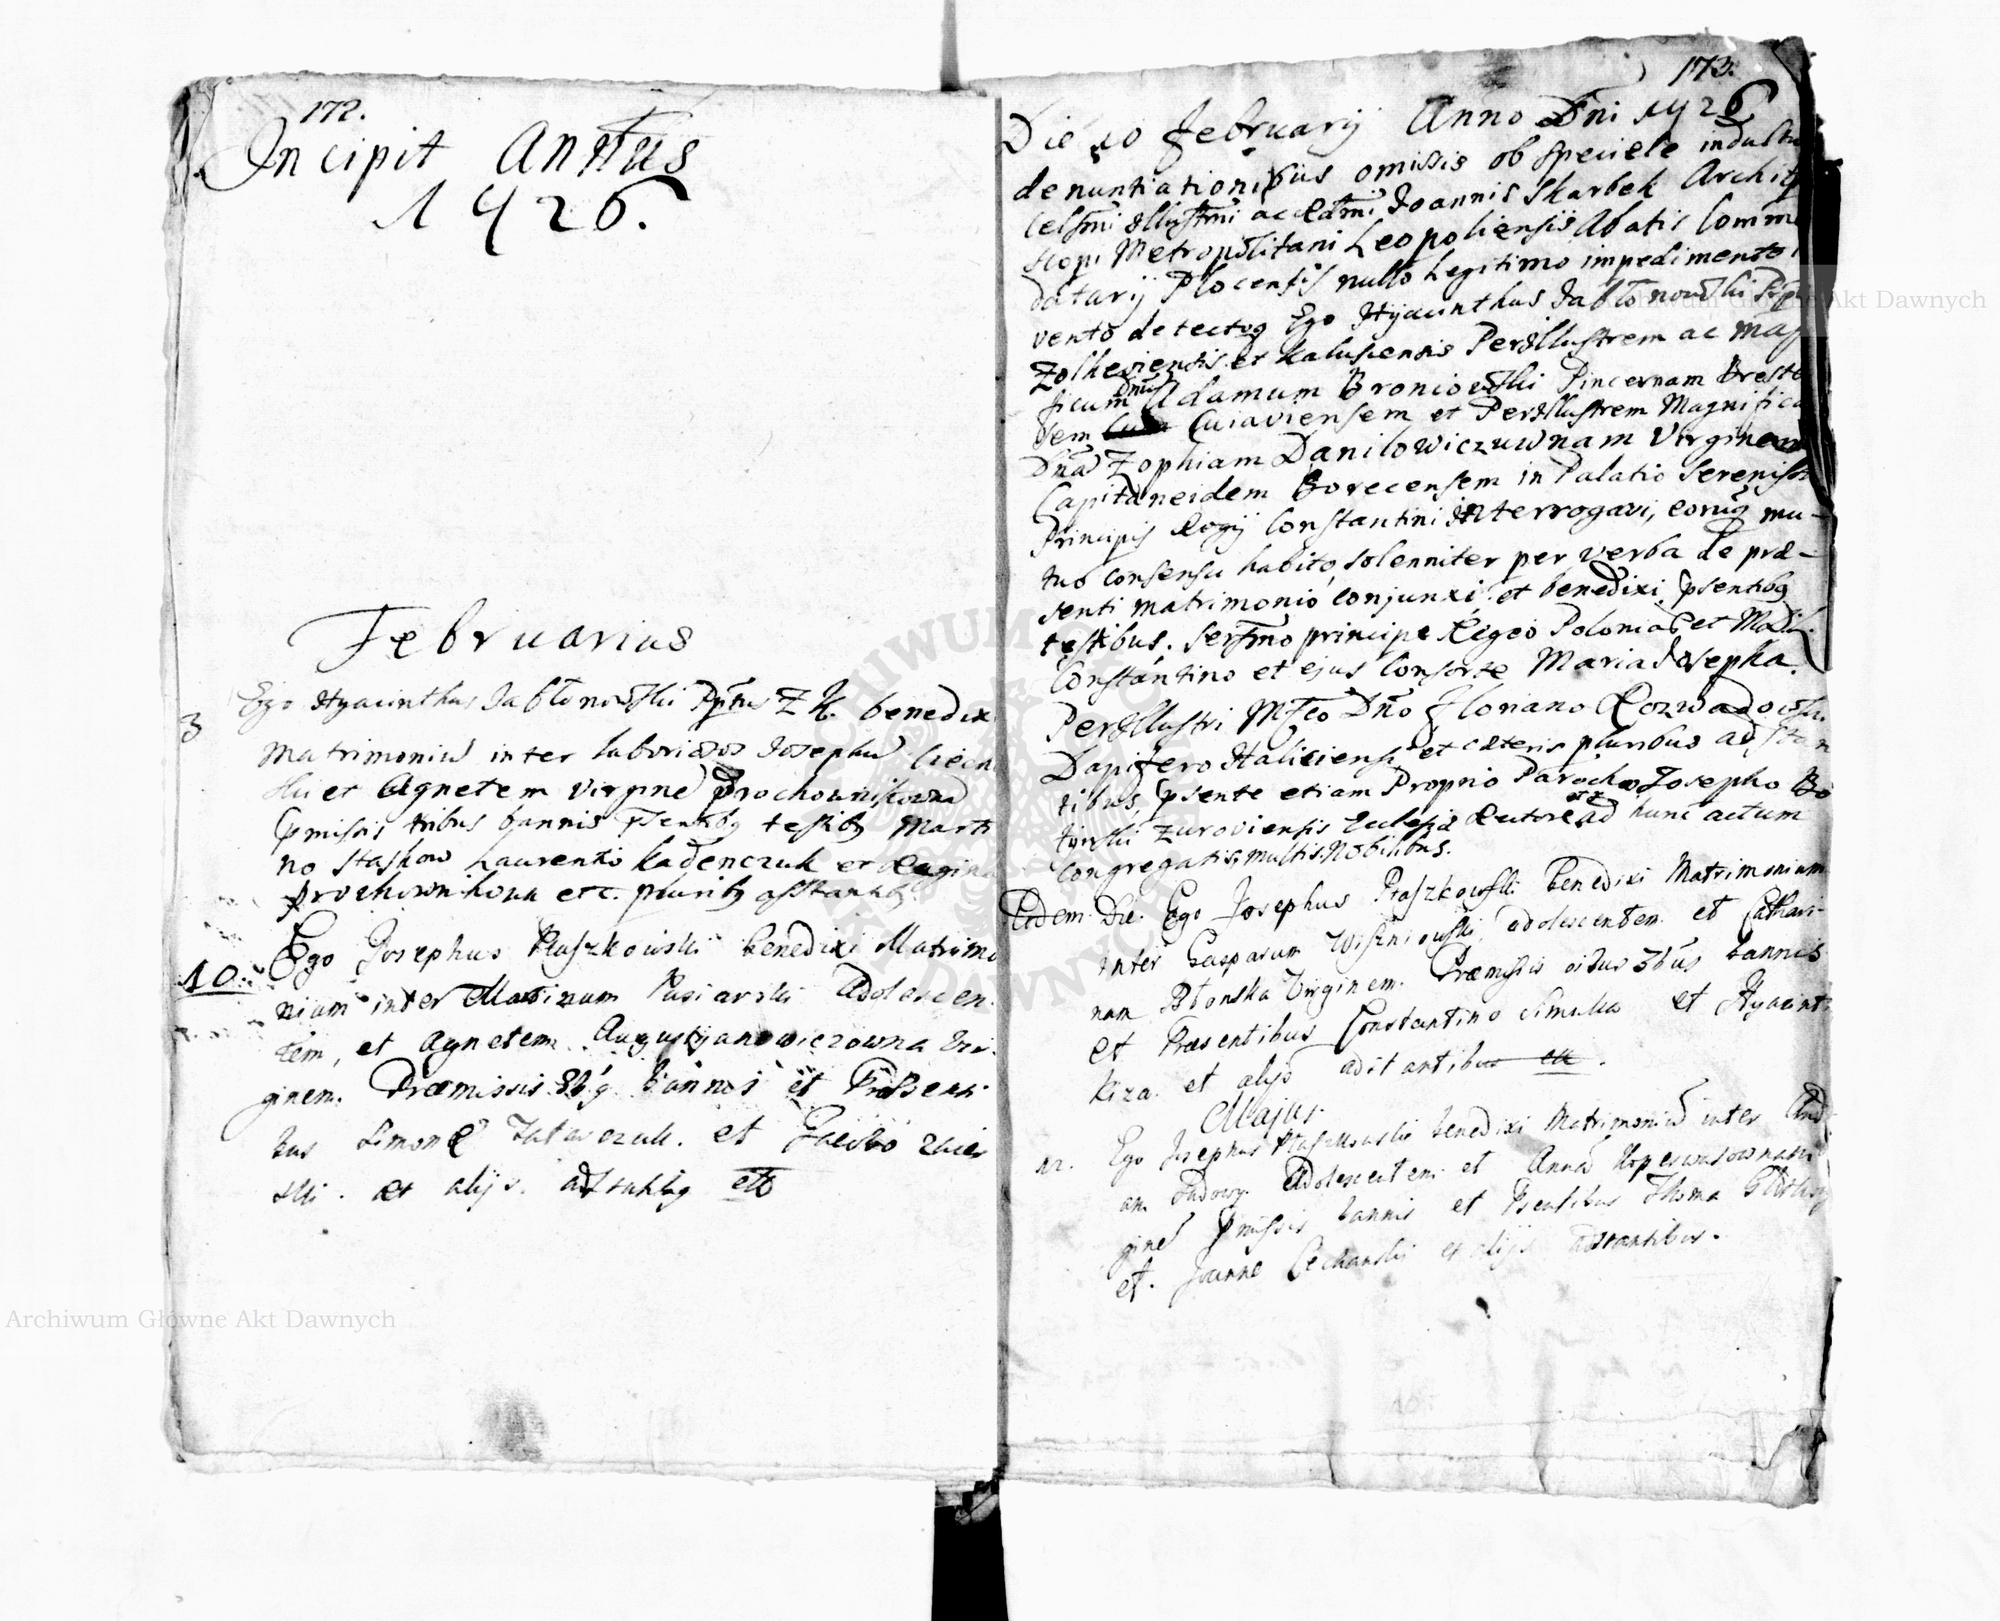 172.
Incipit Annus
1726.
Februarius
3 Ego Hyacinthus Jabłonowski Pptus Z K. benedixi
Matrimoniu inter laboriosos Josephu
ski et Agnetem Virgine Prochownikowna
Pmissis tribus bannis Psentibg testibg Marti
no Staskow Laurentio Kadenczuk et Regina
Prochownikowa etc. pluribg asstantibg
10. Ego Josephus Ptaszkowski benedixi Matrimo
nium inter Martinum Adolescen
tem, et Agnetem Augustyanowiczowna Vir-
ginem. Præmissis 3bg bannis et Præsenti
bus Simone et Jacobo
ski. et alijs. adstantibg etc
173.
Die 10 February Anno Dni 1726
denuntiationibus omissis ob speciele indultu
Celsmi Illustmi ac Rdmi Joannis Skarbek Archiep
scopi Metropolitani Leopoliensis Abatis Comme
datarij Plocensis nullo Legitimo impedimento
vento detectog Ego Hyacinthus Jabłonowski
Zolkeviensis et Kalusiensis Perillustrem ac Mag
ficum Dnum Adamum Broniowski Pincernam Breste
sem Cuiaviensem et Perillustrem Magnifica
Dna Zophiam Danilowiczuwnam Virginem
Capitaneidem Borecensem in Palatio Sereniss
Principis Regij Constantini interrogavi, eorug mu-
tuo consensu habito, solenniter per verba de præ-
senti matrimonio conjunxi et benedixi, psentibg
testibus. Sersmo principe Regio Poloniæ et
Constantino et ejus Consorte Maria Josepha.
Perillustri Mfco Dno Floriano Rozwadowski
Dapifero Haliciensi et cæteris pluribus adstan
tibus, psente etiam Proprio Parocho Josepho Bo
Zuroviensis Ecclesiæ Rectore ad hunc actum
congregatis multis Nobilibus.
Eadem Die. Ego Josephus Ptaszkowski benedixi Matrimonium
inter Gasparum Wiszniowski, adolescentem et Cathari-
nam Błonska Virginem. Præmissis 3bus bannis
et Præsentibus Constantino Simulka et Hyacint
kiza. et alijs aditantibus etc.
Majus.
Ego Josephus Ptaszkowski benedixi Matrimoniu inter And
Adolescentem et Anna
gine Pmissis bannis et Psentibus Thoma
et. Joanne et alijs adstantibus.
Archiwum Główne Akt Dawnych
Archiwum Główne Akt Dawnych